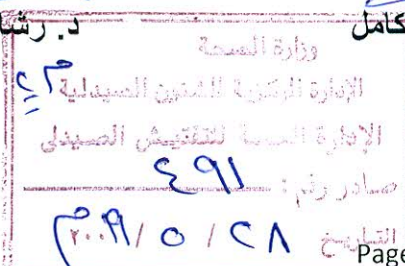 كامل
د. رشا
وزارة الصحة
الإدارة المركزية للشئون الصيدلية
الإدارة العامة للتفتيش الصيدلى
صادر رقم : ٤٩١
التاريخ ٢٨ / ٥ / ٢٠٠٩ م
Page